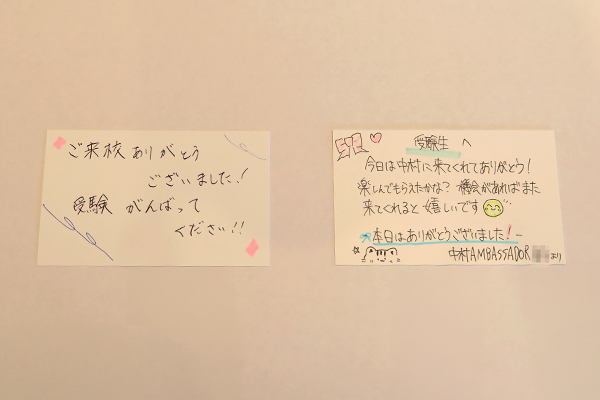 ご来校ありがとう
ございました!
受験 がんばって
ください!!
受験生 へ
今日は中村に来てくれてありがとう!
楽しんでもらえたかな? 機会があればまた
来てくれると嬉しいです
本日はありがとうございました!
中村AMBASSADOR より